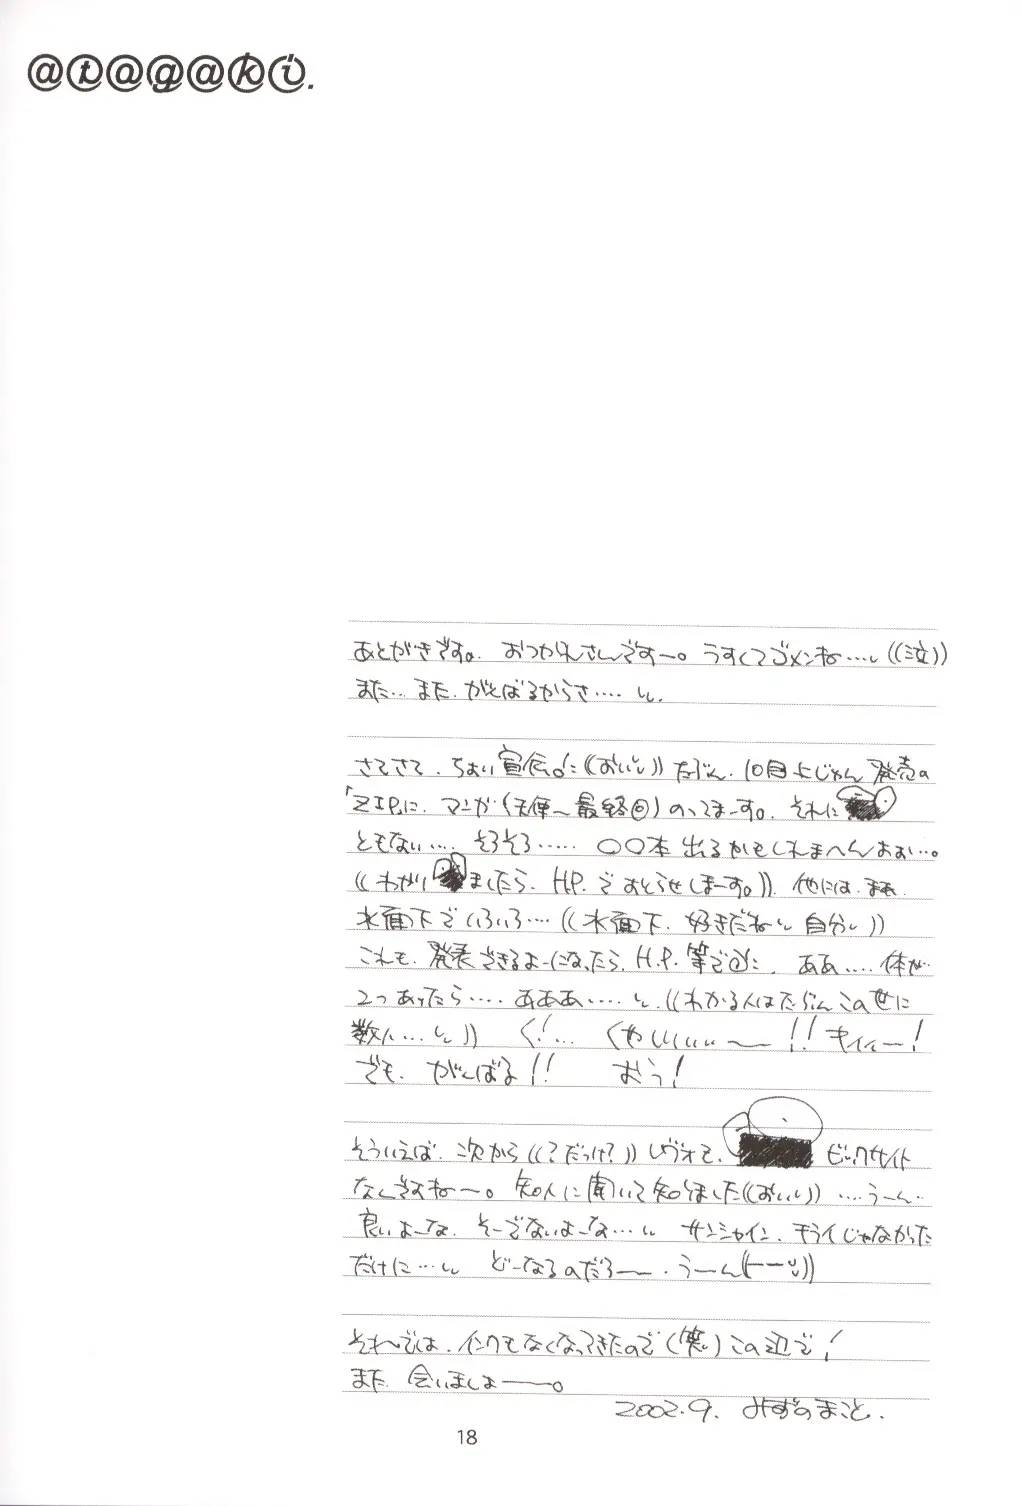 @t@g@ki.
あとがきです。おつかれさんですー。うすくてゴメンね…((泣))
また…また、がんばるからさ….
さてさて、ちょい宣伝。((おいい))たぶん、10月上じゅん発売の
「ZIP」に、マンガ(天使〜最終回)のってまーす。それに
ともない…、そろそろ…… 〇〇本出るかもしれまへんおぉ…。
((わかりましたら、H.P.でおしらせしまーす。)) 他には、まぁ
水面下でいろいろ…((水面下、好きだね 自分))
これも、発表できるよーになったら、H.P.等で。ああ…、体が
2つあったら…、あああ…、((わかる人はたぶんこの世に
数人…)) く!… くやしいぃぃ〜!! キィィー!
でも、がんばる!! おう!
そういえば、次から((?だっけ?))レヴォも、 ビックサイト
なんですよねー。知人に聞いて知りました((おいい)) …うーん…
良いよーな、そーでないよーな… サンシャイン、キライじゃなかった
だけに… どーなるのだろー、うーん
それでは、インクもなくなってきたので(笑)この辺で!
また、会いましょー。
2002.9. みずのまこと.
18